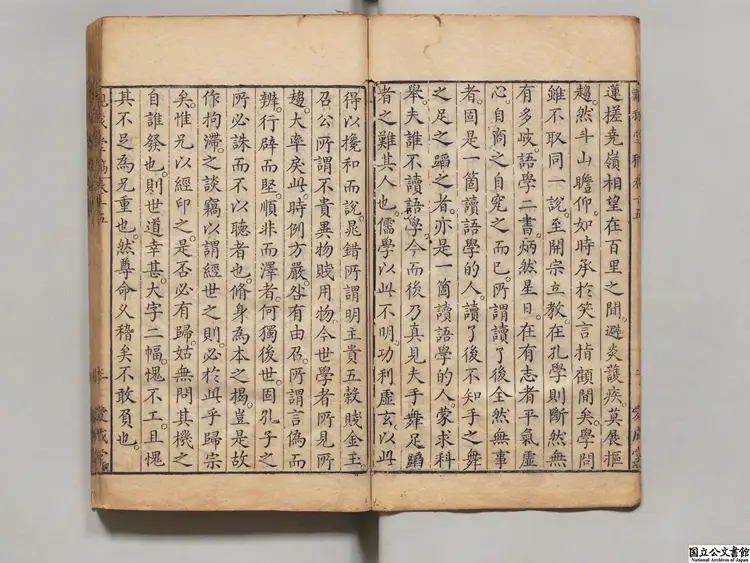 蓮槎堯嶺相望在百里之間避炎護疾莫展樞
趨然斗山瞻仰如時承於笑言指顧間矣學問
雖不取同一說至開宗立教在孔學則斷然無
有多岐語學二書炳然星日在有志者平氣虛
心自商之自究之而已所謂讀了後全然無事
者固是一箇讀語學的人讀了後不知手之舞
之足之蹈之者亦是一箇讀語學的人蒙求科
舉夫誰不讀語學今而後乃真見夫手舞足蹈
者之難其人也儒學以此不明功利虛玄以此
得以攙和而說晁錯所謂明主貴五穀賤金玉
召公所謂不貴異物賤用物今世學者所見所
趨大率戾此時例方嚴咎有由召所謂言偽而
辨行辟而堅順非而澤者何獨後世固孔子之
所必誅而不以聽者也脩身為本之揭豈是故
作拘滯之談竊以謂經世之則必於此乎歸宗
矣惟兄以經印之是否必有歸姑無問其機之
自誰發也則世道幸甚大字二幅愧不工且愧
其不足為兄重也然尊命久稽矣不敢負也
國立公文書館
National Archives of Japan